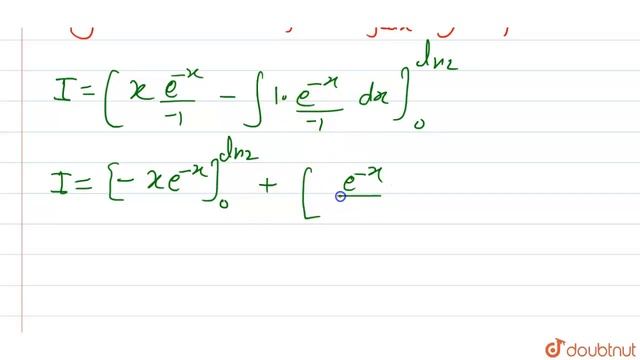 I = [ x e^{-x}/-1 - ∫ 1. e^{-x}/-1 dx ]_0^{ln2}
I = [ - x e^{-x} ]_0^{ln2} + [ e^{-x}
doubtnut